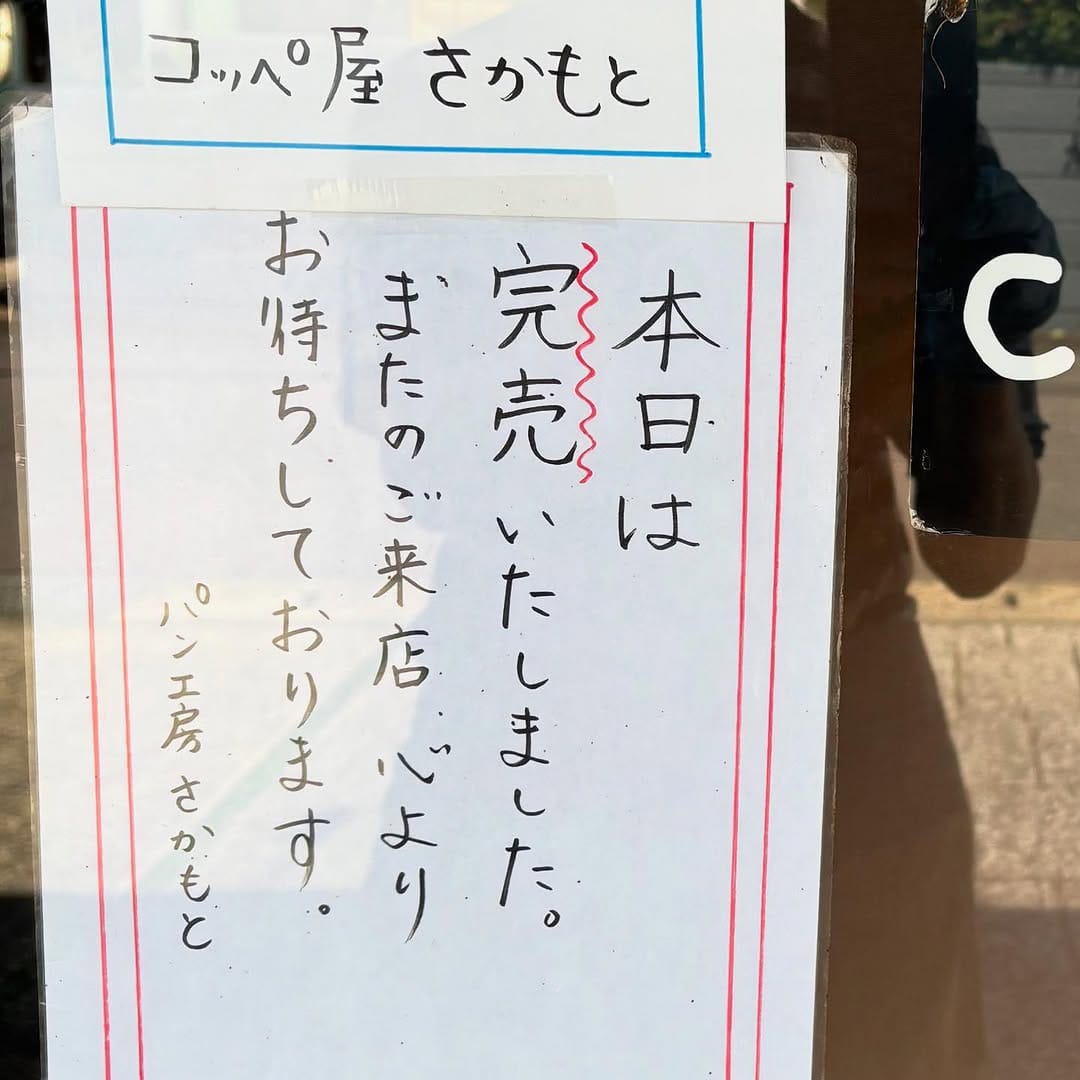 コッペ屋 さかもと
本日は
完売いたしました。
またのご来店 心より
お待ちしております。
パン工房 さかもと
C